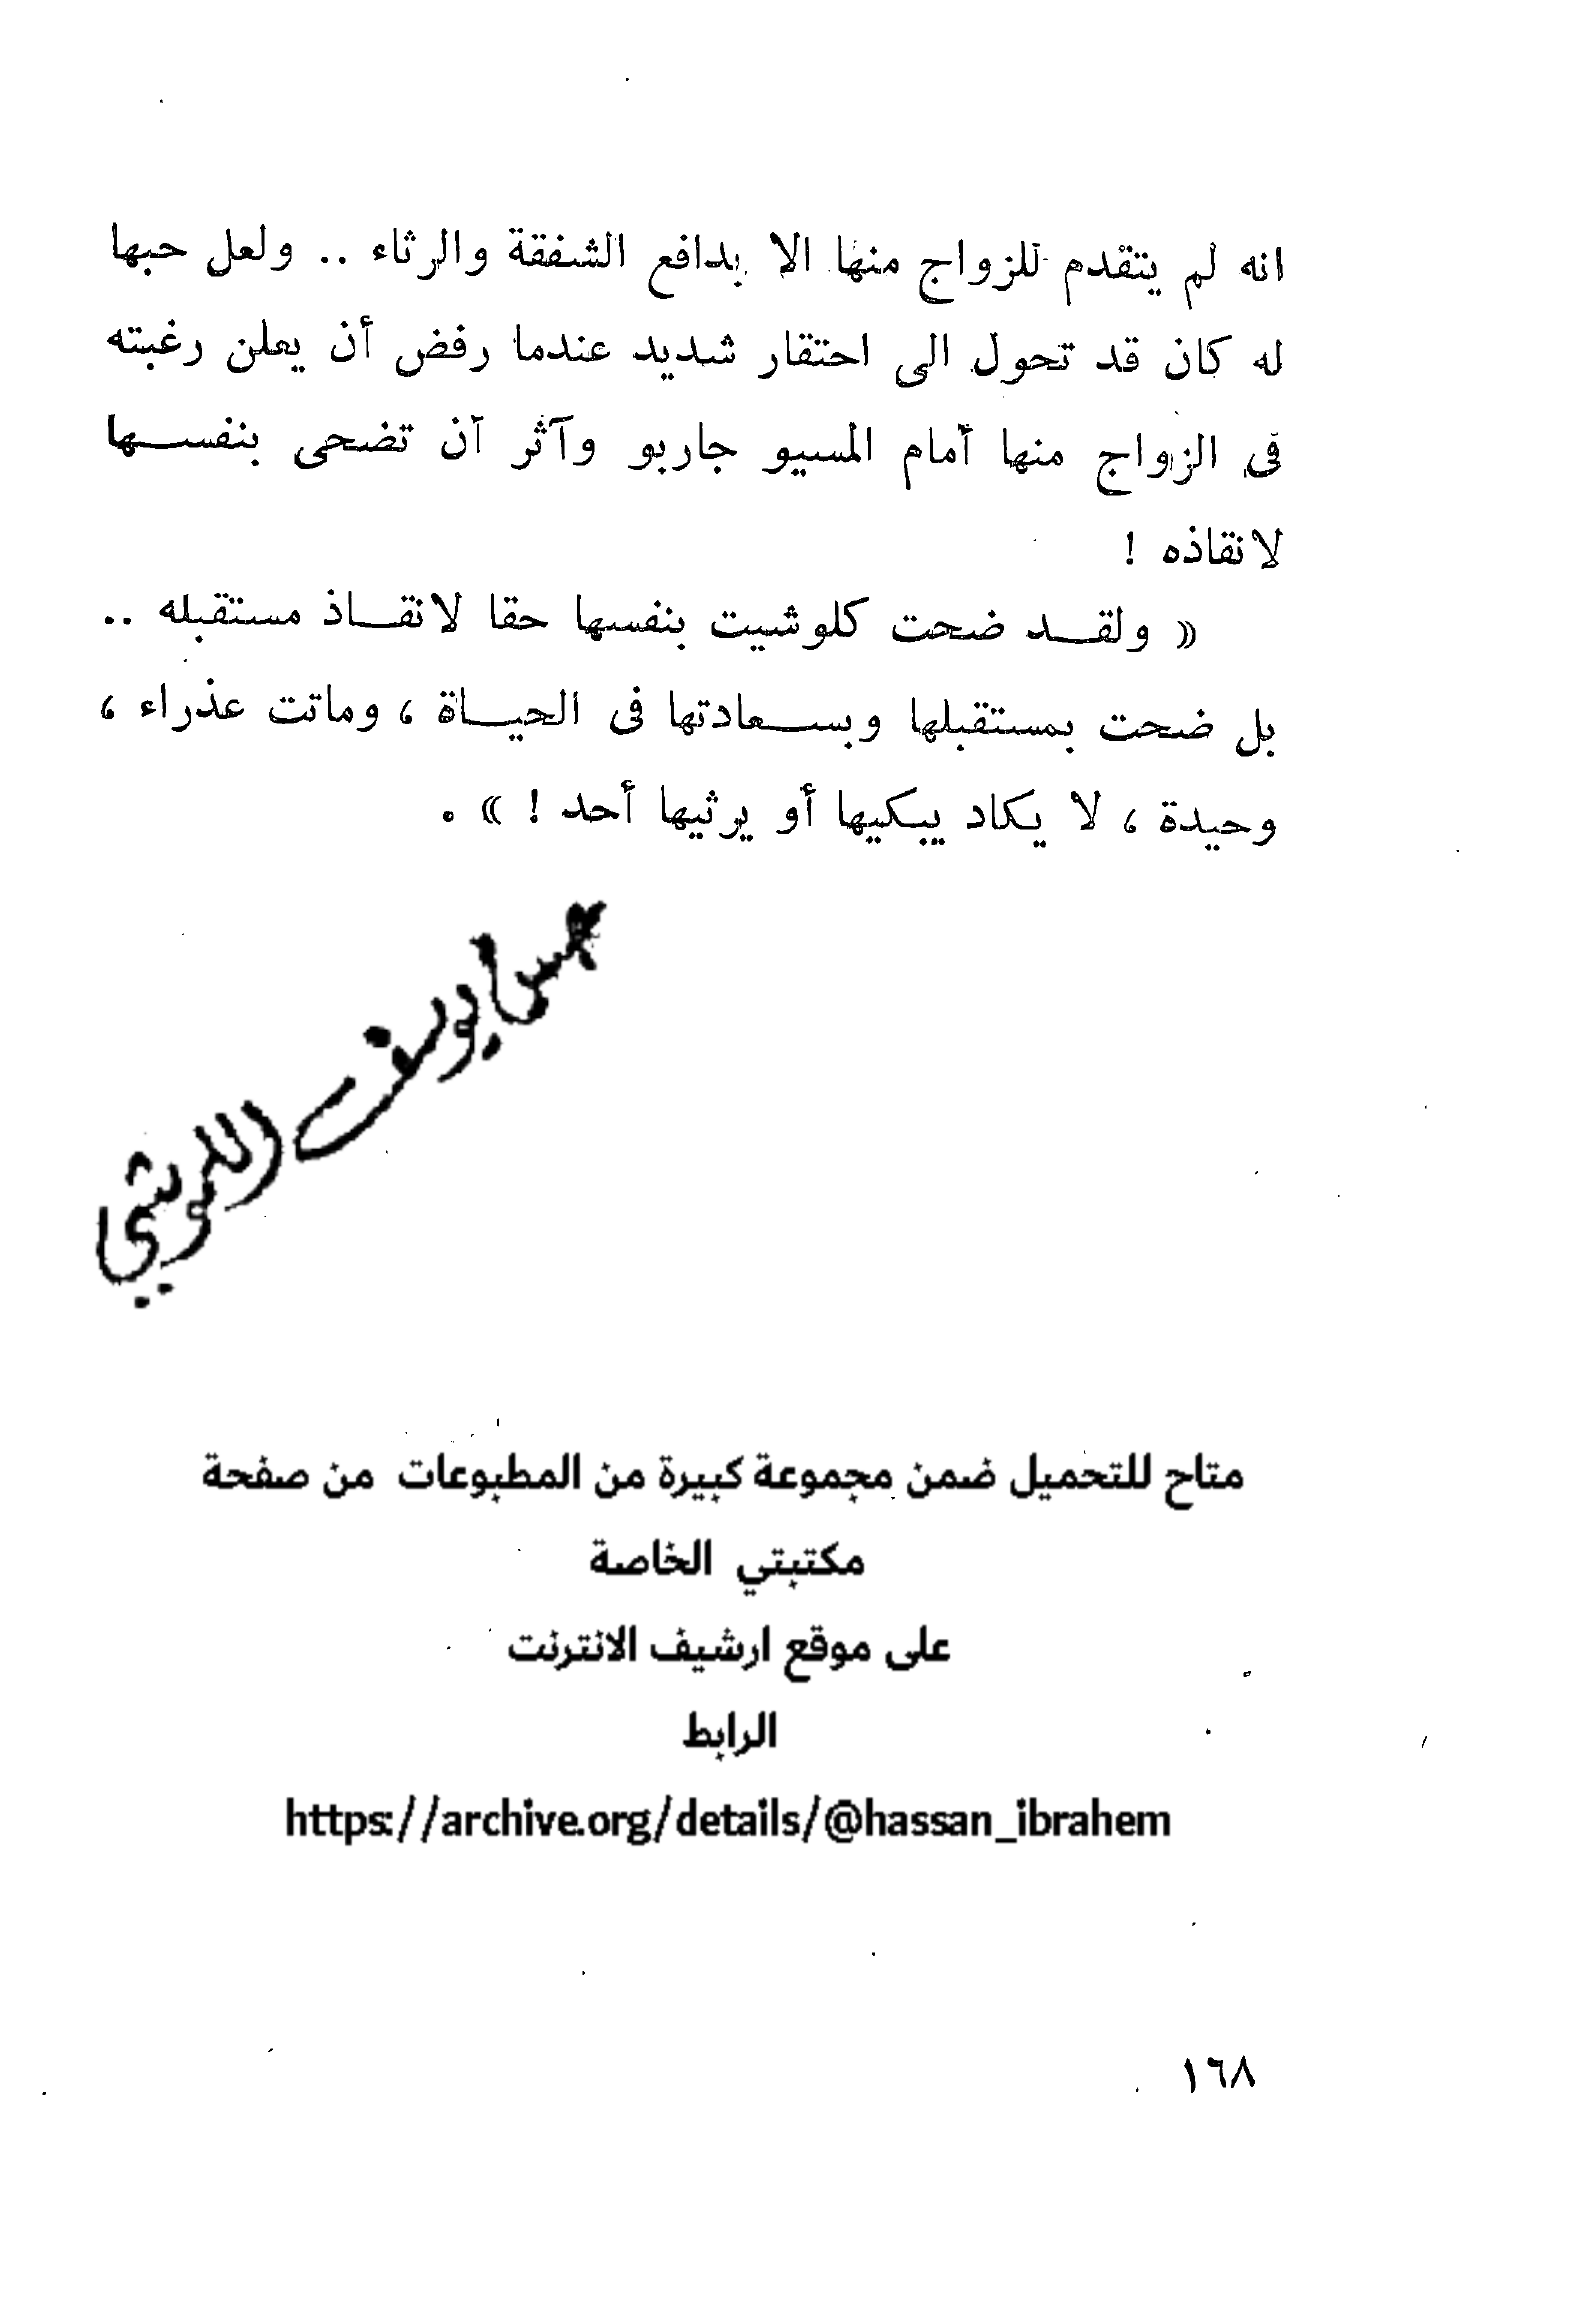 انه لم يتقدم للزواج منها الا بدافع الشفقة والرثاء .. ولعل حبها
له كان قد تحول الى احتقار شديد عندما رفض أن يعلن رغبته
فى الزواج منها أمام المسيو جاربو وآثر أن تضحى بنفسها
لانقاذه !
« ولقد ضحت كلوشيت بنفسها حقا لانقاذ مستقبله ..
بل ضحت بمستقبلها وبسعادتها فى الحياة ، وماتت عذراء ،
وحيدة ، لا يكاد يبكيها أو يرثيها أحد ! » .
يوسف
متاح للتحميل ضمن مجموعة كبيرة من المطبوعات من صفحة
مكتبتي الخاصة
على موقع ارشيف الانترنت
الرابط
https://archive.org/details/@hassan_ibrahem
١٦٨